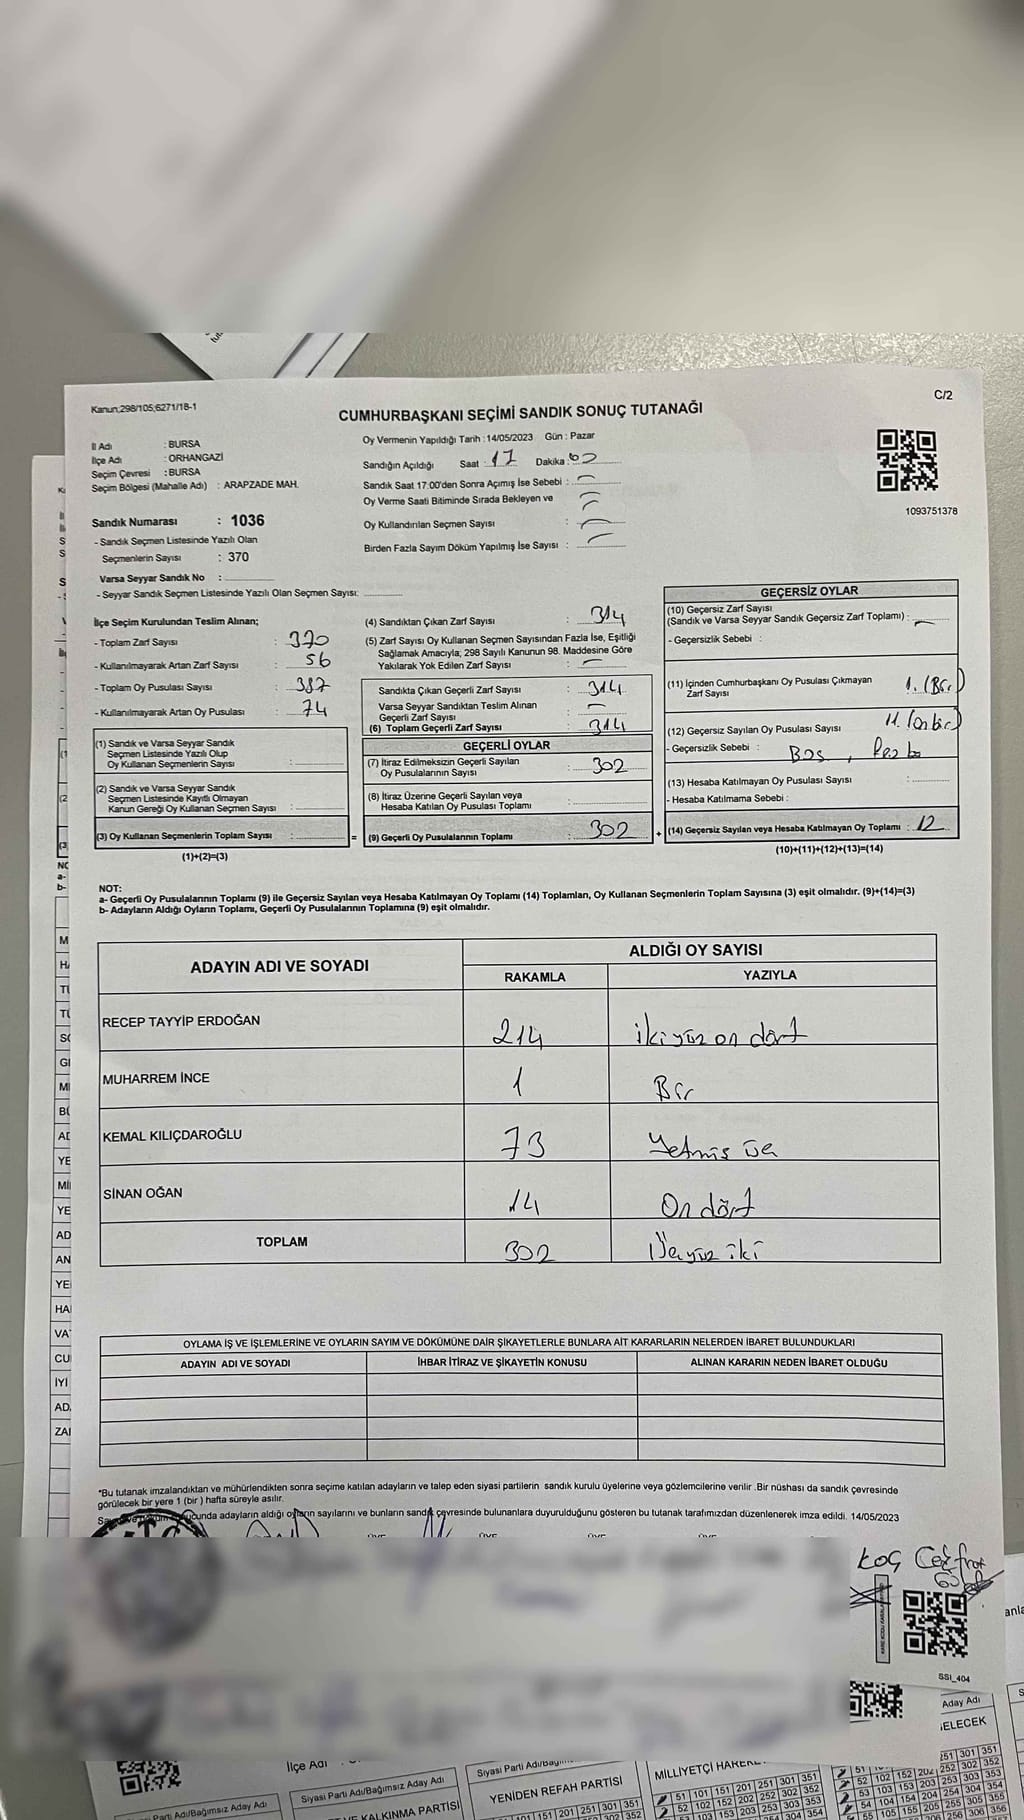 Kanun;298/105;6271/18-1
C/2
CUMHURBAŞKANI SEÇİMİ SANDIK SONUÇ TUTANAĞI
İl Adı : BURSA
İlçe Adı : ORHANGAZİ
Seçim Çevresi : BURSA
Seçim Bölgesi (Mahalle Adı) : ARAPZADE MAH.
Oy Vermenin Yapıldığı Tarih : 14/05/2023 Gün : Pazar
Sandığın Açıldığı Saat : 17 Dakika :
Sandık Saat 17:00'den Sonra Açımış İse Sebebi :
Oy Verme Saati Bitiminde Sırada Bekleyen ve
Oy Kullandırılan Seçmen Sayısı :
Birden Fazla Sayım Döküm Yapılmış İse Sayısı :
1093751378
Sandık Numarası : 1036
- Sandık Seçmen Listesinde Yazılı Olan
Seçmenlerin Sayısı : 370
Varsa Seyyar Sandık No :
- Seyyar Sandık Seçmen Listesinde Yazılı Olan Seçmen Sayısı:
İlçe Seçim Kurulundan Teslim Alınan;
- Toplam Zarf Sayısı : 370
- Kullanılmayarak Artan Zarf Sayısı : 56
- Toplam Oy Pusulası Sayısı : 387
- Kullanılmayarak Artan Oy Pusulası : 74
(1) Sandık ve Varsa Seyyar Sandık
Seçmen Listesinde Yazılı Olup
Oy Kullanan Seçmenlerin Sayısı :
(2) Sandık ve Varsa Seyyar Sandık
Seçmen Listesinde Kayıtlı Olmayan
Kanun Gereği Oy Kullanan Seçmen Sayısı :
(3) Oy Kullanan Seçmenlerin Toplam Sayısı : =
(1)+(2)=(3)
(4) Sandıktan Çıkan Zarf Sayısı : 314
(5) Zarf Sayısı Oy Kullanan Seçmen Sayısından Fazla İse, Eşitliği
Sağlamak Amacıyla; 298 Sayılı Kanunun 98. Maddesine Göre
Yakılarak Yok Edilen Zarf Sayısı :
Sandıkta Çıkan Geçerli Zarf Sayısı : 314
Varsa Seyyar Sandıktan Teslim Alınan
Geçerli Zarf Sayısı :
(6) Toplam Geçerli Zarf Sayısı : 314
GEÇERLİ OYLAR
(7) İtiraz Edilmeksizin Geçerli Sayılan
Oy Pusulalarının Sayısı : 302
(8) İtiraz Üzerine Geçerli Sayılan veya
Hesaba Katılan Oy Pusulası Toplamı :
(9) Geçerli Oy Pusulalarının Toplamı : 302 +
GEÇERSİZ OYLAR
(10) Geçersiz Zarf Sayısı
(Sandık ve Varsa Seyyar Sandık Geçersiz Zarf Toplamı) :
- Geçersizlik Sebebi :
(11) İçinden Cumhurbaşkanı Oy Pusulası Çıkmayan
Zarf Sayısı 1. (Bir)
(12) Geçersiz Sayılan Oy Pusulası Sayısı 11. (on bir)
- Geçersizlik Sebebi : Boş,
(13) Hesaba Katılmayan Oy Pusulası Sayısı :
- Hesaba Katılmama Sebebi :
(14) Geçersiz Sayılan veya Hesaba Katılmayan Oy Toplamı : 12
(10)+(11)+(12)+(13)=(14)
NOT:
a- Geçerli Oy Pusulalarının Toplamı (9) ile Geçersiz Sayılan veya Hesaba Katılmayan Oy Toplamı (14) Toplamları, Oy Kullanan Seçmenlerin Toplam Sayısına (3) eşit olmalıdır. (9)+(14)=(3)
b- Adayların Aldığı Oyların Toplamı, Geçerli Oy Pusulalarının Toplamına (9) eşit olmalıdır.
ADAYIN ADI VE SOYADI
ALDIĞI OY SAYISI
RAKAMLA YAZIYLA
RECEP TAYYİP ERDOĞAN 214 ikiyüz on dört
MUHARREM İNCE 1 Bir
KEMAL KILIÇDAROĞLU 73 Yetmiş üç
SİNAN OĞAN 14 On dört
TOPLAM 302 Üçyüz iki
OYLAMA İŞ VE İŞLEMLERİNE VE OYLARIN SAYIM VE DÖKÜMÜNE DAİR ŞİKAYETLERLE BUNLARA AİT KARARLARIN NELERDEN İBARET BULUNDUKLARI
ADAYIN ADI VE SOYADI İHBAR İTİRAZ VE ŞİKAYETİN KONUSU ALINAN KARARIN NEDEN İBARET OLDUĞU
*Bu tutanak imzalandıktan ve mühürlendikten sonra seçime katılan adayların ve talep eden siyasi partilerin sandık kurulu üyelerine veya gözlemcilerine verilir .Bir nüshası da sandık çevresinde
görülecek bir yere 1 (bir ) hafta süreyle asılır.
adayların aldığı oyların sayılarını ve bunların sandık çevresinde bulunanlara duyurulduğunu gösteren bu tutanak tarafımızdan düzenlenerek imza edildi. 14/05/2023
SSI_404
Aday Adı
İlçe Adı
Siyasi Parti Adı/Bağımsız Aday Adı
YENİDEN REFAH PARTİSİ
51 101 151 201 251 301 351
52 102 152 202 252 302 352
53 103 153 203 253 303 353
54 104 154 204 254 304 354